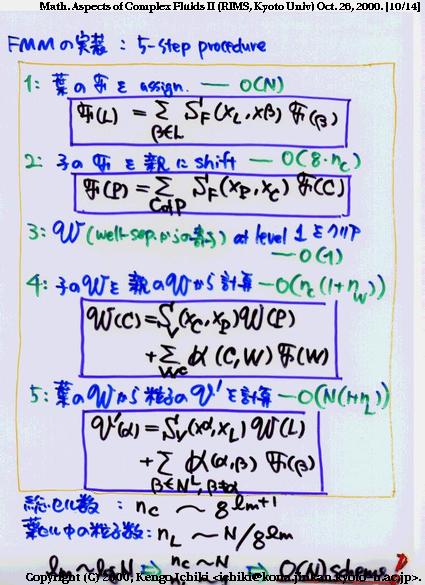 Math. Aspects of Complex Fluids II (RIMS, Kyoto Univ) Oct. 26, 2000. [10/14]
FMMの実装 : 5-step procedure
1: 葉の ℱ を assign. — O(N)
ℱ(L) = Σ_{β∈L} S_F(x_L, xβ) ℱ(β)
2: 子の ℱ を親に shift — O(8·n_c)
ℱ(P) = Σ_{C of P} S_F(x_P, x_C) ℱ(C)
3: 𝒲 (well-sep. からの寄与) at level 1 をクリア
— O(1)
4: 子の𝒲を親の𝒲から計算 — O(n_c(1+n_w))
𝒲(C) = S_V(x_C, x_P) 𝒲(P)
+ Σ_{W_C} 𝒦(C, W) ℱ(W)
5: 葉の𝒲から粒子の𝒱'を計算 — O(N(1+n_L))
𝒱'(α) = S_V(xα, x_L) 𝒲(L)
+ Σ_{β∈N_L, β≠α} 𝒦(α, β) ℱ(β)
総セル数 : n_c ~ 8^{lm+1}
葉セル中の粒子数: n_L ~ N/8^{lm}
lm ~ log N ⇒ n_c ~ N ⇒ O(N) scheme
Copyright (C) 2000, Kengo Ichiki <ichiki@kona.jinkan.kyoto-u.ac.jp>.